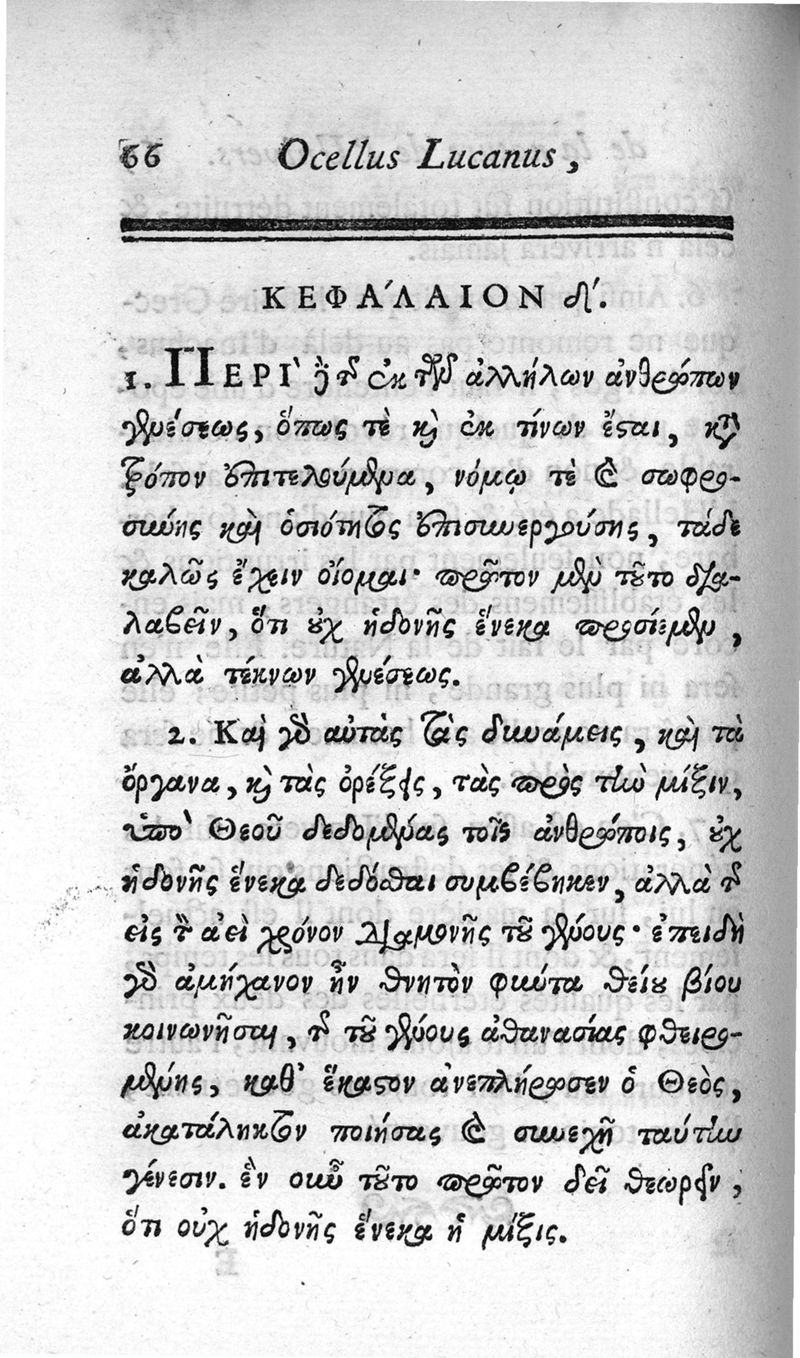 66 Ocellus Lucanus,
ΚΕΦΑ΄ΛΑΙΟΝ δ΄.
1. ΠΕΡΙ` δὲ τῆς ἐκ τῶν ἀλλήλων ἀνθρώπων
γενέσεως, ὅπως τὲ καὶ ἐκ τίνων ἔσται, κατὰ
τρόπον ἐπιτελούμενα, νόμῳ τὲ καὶ σωφρο-
σύνης καὶ ὁσιότητος ἐπισυνεργούσης, τάδε
καλῶς ἔχειν οἴομαι· πρῶτον μὲν τοῦτο δια-
λαβεῖν, ὅτι οὐχ ἡδονῆς ἕνεκα πρόσιεμεν,
ἀλλὰ τέκνων γενέσεως.
2. Καὶ γὰρ αὐτὰς τὰς δυνάμεις, καὶ τὰ
ὄργανα, καὶ τὰς ὀρέξεις, τὰς πρὸς τὴν μίξιν,
ὑπὸ Θεοῦ δεδομένας τοῖς ἀνθρώποις, οὐχ
ἡδονῆς ἕνεκα δεδόσθαι συμβέβηκεν, ἀλλὰ τῆς
εἰς τὸν ἀεὶ χρόνον διαμονῆς τοῦ γένους· ἐπειδὴ
γὰρ ἀμήχανον ἦν θνητὸν φύντα θείου βίου
κοινωνῆσαι, τῆς τοῦ γένους ἀθανασίας φθειρο-
μένης, καθ᾽ ἕκαστον ἀνεπλήρωσεν ὁ Θεὸς,
ἀκατάληκτον ποιήσας καὶ συνεχῆ ταύτην
γένεσιν. ἓν οὖν τοῦτο πρῶτον δεῖ θεωρεῖν,
ὅτι οὐχ ἡδονῆς ἕνεκα ἡ μίξις.